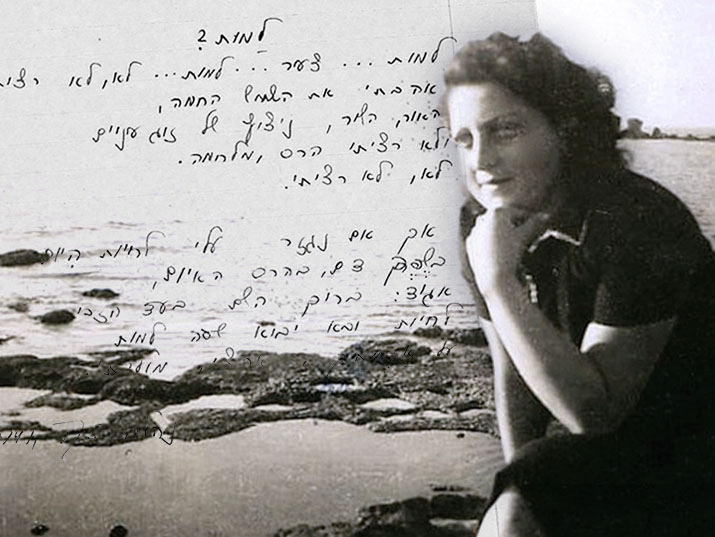 למות ?
למות ... צעיר ... למות ... לא, לא
אהבתי את השמש החמה,
האור, השיר, ניצוץ של זוג עיניים
ולא רציתי הרס, ומלחמה.
לא, לא רציתי.
אך אם נגזר עלי לחיות היום
בשפך דם, בהרס האיום,
אגיד: ברוך השם בעד הזכות
לחיות ובא יבוא שעה למות
על